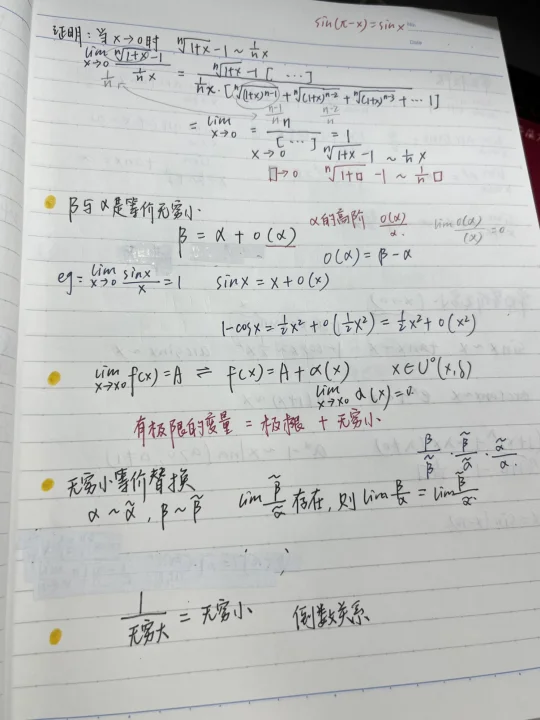 sin(π-x)=sinx
证明:当x→0时 ⁿ√(1+x) -1 ~ 1/n x
lim x→0 (ⁿ√(1+x) -1)/(1/n x) = (ⁿ√(1+x) -1 [ ⋯ ])/(1/n x·[ⁿ√(1+x)ⁿ⁻¹ + ⁿ√(1+x)ⁿ⁻² + ⁿ√(1+x)ⁿ⁻³ + ⋯ 1])
= lim x→0 = n/[⋯] = 1
x→0 ⁿ√(1+x) -1 ~ 1/n x
□→0 ⁿ√(1+□) -1 ~ 1/n □
β与α是等价无穷小.
β = α + o(α) α的高阶 o(α)/α lim o(α)/(x) = 0
o(α) = β - α
eg: lim x→0 sinx/x = 1 sinx = x + o(x)
1-cosx = ½x² + o(½x²) = ½x² + o(x²)
lim x→x0 f(x) = A ⇌ f(x) = A + α(x) x∈U°(x,δ)
lim x→x0 α(x) = 0
有极限的变量 = 极限 + 无穷小
β/β̃ · β̃/α̃ · α̃/α.
无穷小等价替换
α~α̃, β~β̃ lim β̃/α̃ 存在, 则 lim β/α = lim β̃/α̃
1/无穷大 = 无穷小 倒数关系